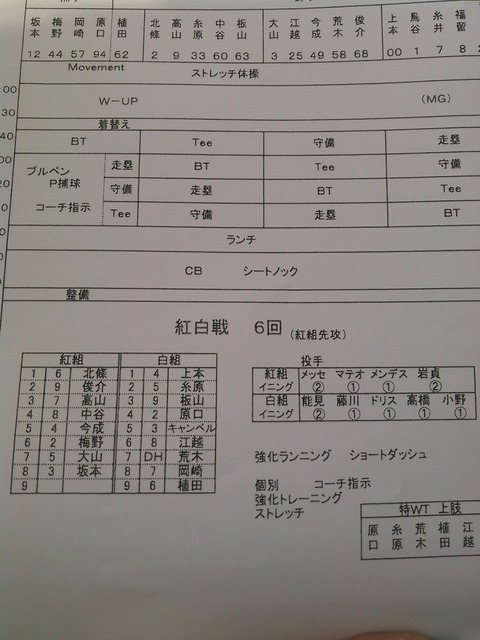 坂本 梅野 岡崎 原口 植田 北條 高山 糸原 中谷 板山 大山 江越 今成 荒木 俊介 上本 鳥谷 糸井 福留
12 44 57 94 62 2 9 33 60 63 3 25 49 58 68 00 1 7 8
Movement ストレッチ体操
00
W-UP (MG)
30
着替え
40 BT Tee 守備 走塁
00 ブルペン 走塁 BT Tee 守備
20 P捕球 守備 走塁 BT Tee
コーチ指示 Tee 守備 走塁 BT
ランチ
CB シートノック
整備
紅白戦 6回 (紅組先攻)
紅組 白組
1 6 北條 1 4 上本
2 9 俊介 2 5 糸原
3 7 高山 3 9 板山
4 8 中谷 4 2 原口
5 4 今成 5 3 キャンベル
6 2 梅野 6 8 江越
7 5 大山 7 DH 荒木
8 3 坂本 8 7 岡崎
9 9 6 植田
投手
紅組 メッセ マテオ メンデス 岩貞
イニング ② ① ① ②
白組 能見 藤川 ドリス 高橋 小野
イニング ② ① ① ① ①
強化ランニング ショートダッシュ
個別 コーチ指示
強化トレーニング
ストレッチ
特WT 上肢
原口 糸原 荒木 植田 江越